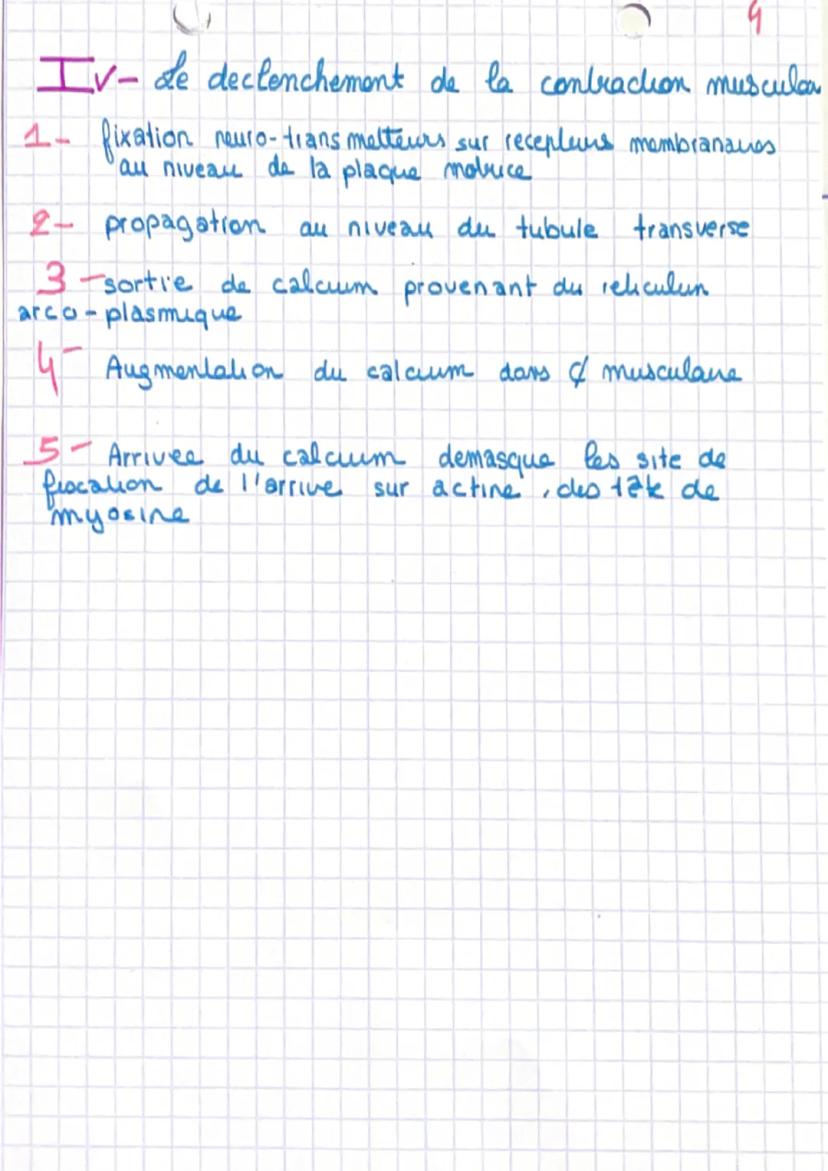 4
IV- Le declenchement de la contraction musculai
1- fixation neuro-transmetteurs sur recepteurs membranaires
au niveau de la plaque motrice
2- propagation au niveau du tubule transverse
3-sortie de calcium provenant du reticulun
arco-plasmique
4- Augmentation du calcium dans ₵ musculaire
5- Arrivee du calcium demasque les site de
fixation de l'arrive sur actine, des tête de
myosine